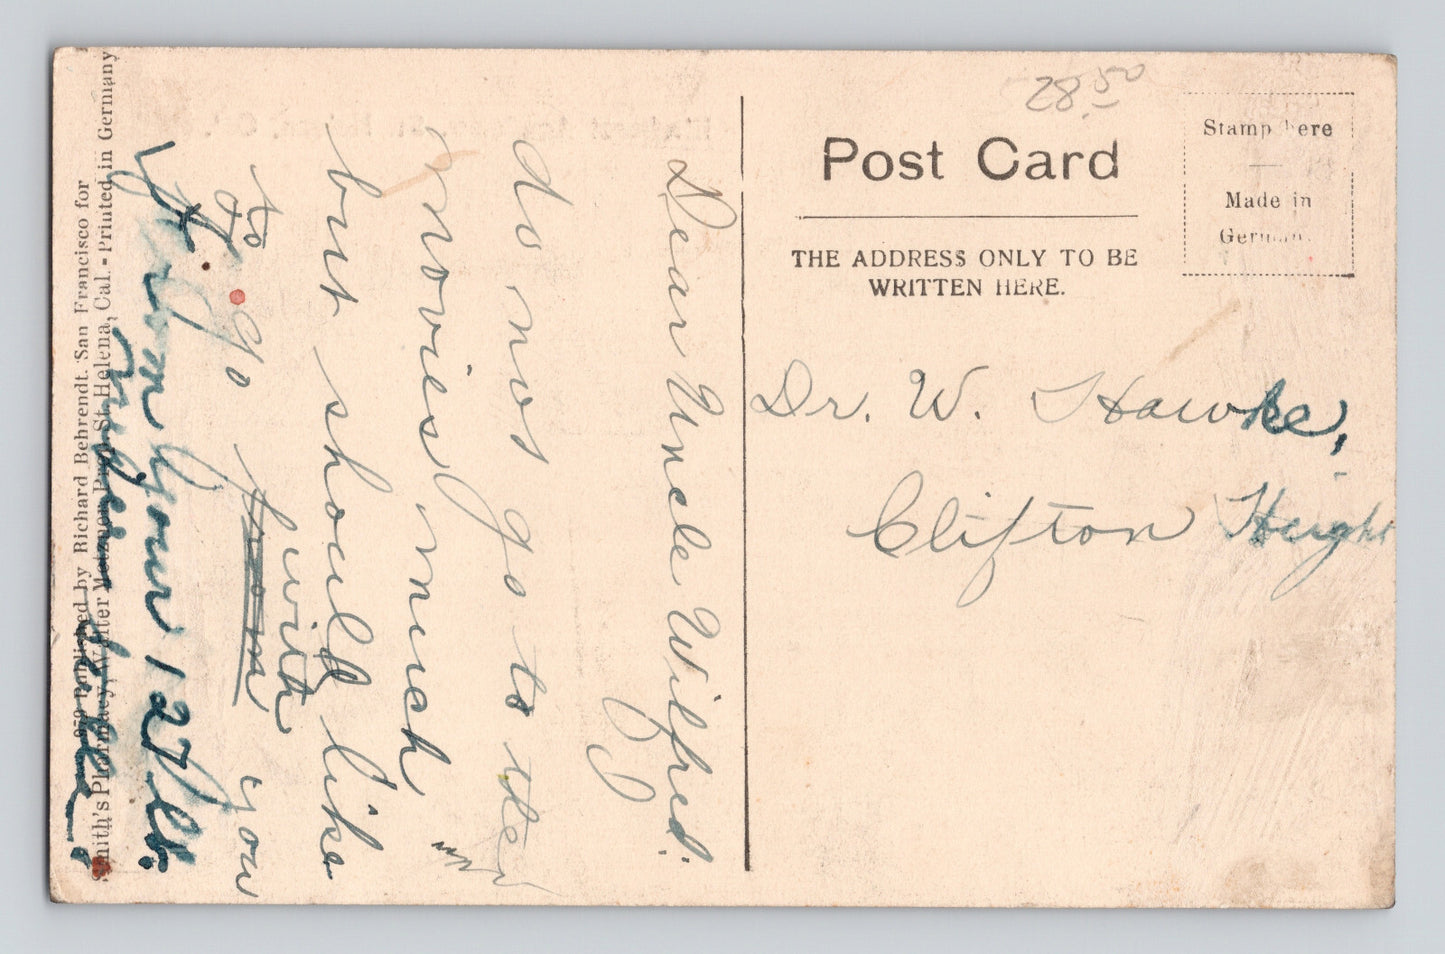 Dear Uncle Wilfred:
I
do not go to the
movies much
but should like
to go from you
with
From your
Smith's Pharmacy, Walter Metzner Prop. St. Helena, Cal. - Printed in Germany
Published by Richard Behrendt. San Francisco for
28.50
Post Card
THE ADDRESS ONLY TO BE
WRITTEN HERE.
Stamp here
Made in
Germany.
Dr. W. Hawke,
Clifton Height